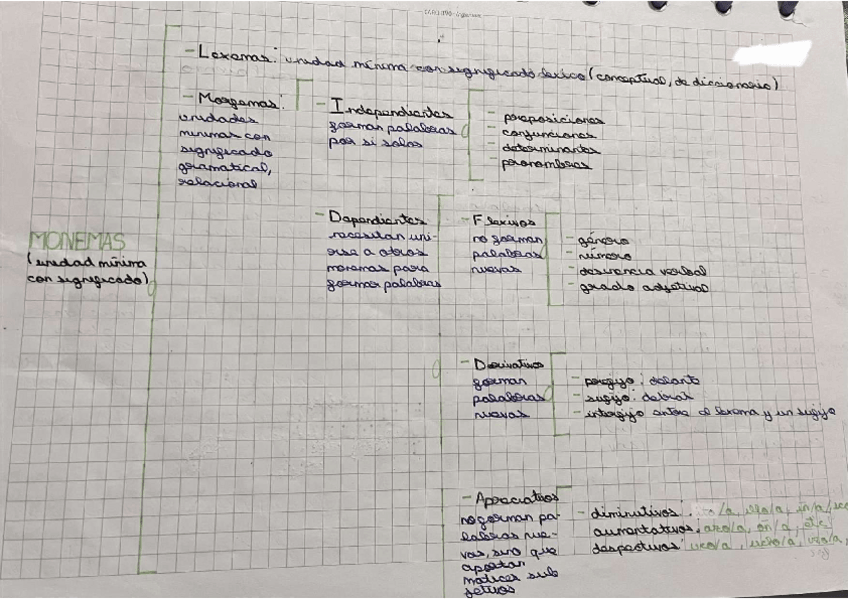 - Lexemas: unidad mínima con significado léxico (conceptual, de diccionario)
- Morfemas:
unidades
mínimas con
significado
gramatical,
relacional
- Independientes
forman palabras
por si solos
- preposiciones
- conjunciones
- determinantes
- pronombres
MONEMAS
(unidad mínima
con significado)
- Dependientes
necesitan uni-
rse a otros
monemas para
formar palabras
- Flexivos
no forman
palabras
nuevas
- género
- número
- desinencia verbal
- grado adjetivo
- Derivativos
forman
palabras
nuevas
- prefijo: delante
- sufijo: detrás
- interfijo entre el lexema y un sufijo
- Apreciativos
no forman pa-
labras nue-
vas, sino que
aportan
matices sub
jetivos
- diminutivos: illo/a, in/a
aumentativos: azo/a, on/a, etc
despectivos: uco/a, ucho/a